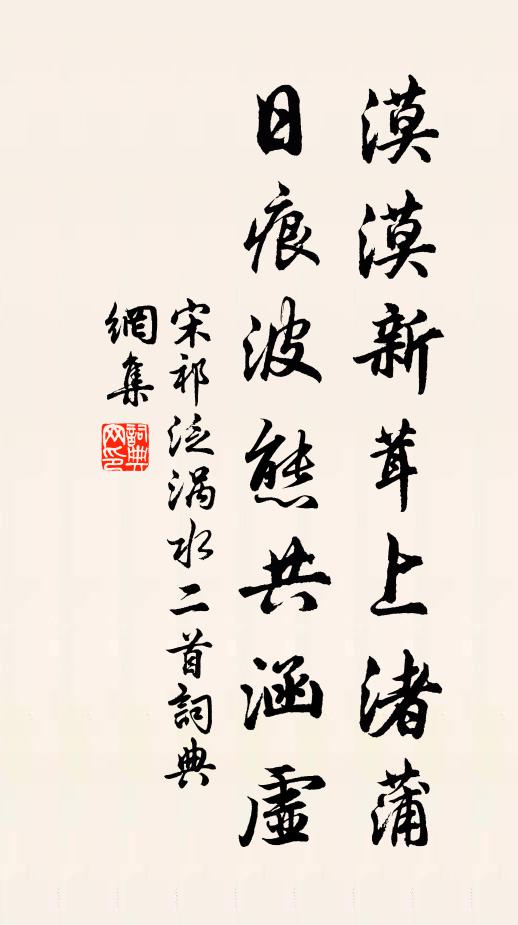 漠漠新茸上渚蒲
日痕波熊共涵虛
宋祁泛涡水二首詞典
網集
詞典
网印